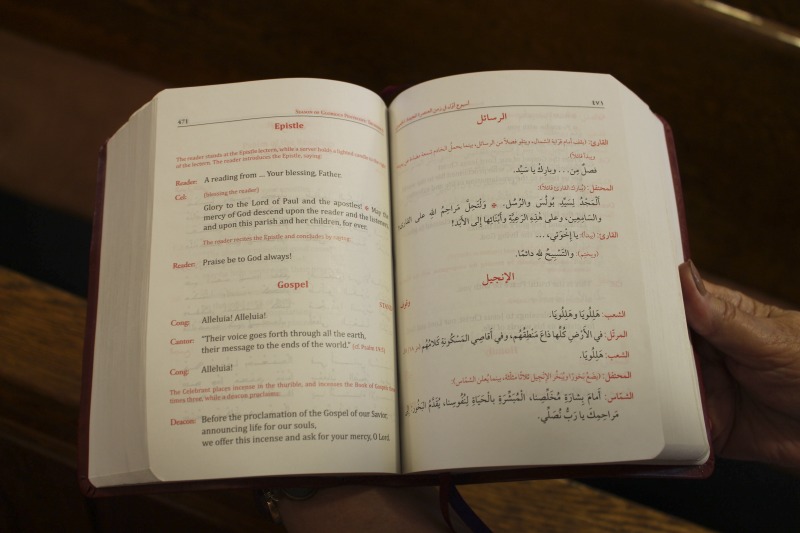 471
Season of Glorious
Epistle
The reader stands at the Epistle lectern, while a server holds a lighted candle
of the lectern. The reader introduces the Epistle, saying:
Reader: A reading from ... Your blessing, Father.
Cel: (blessing the reader)
Glory to the Lord of Paul and the apostles! ✶ May the
mercy of God descend upon the reader and the listeners,
and upon this parish and her children, for ever.
The reader recites the Epistle and concludes by saying:
Reader: Praise be to God always!
Gospel
Cong: Alleluia! Alleluia!
Cantor: “Their voice goes forth through all the earth,
their message to the ends of the world.” (cf. Psalm 19:5)
Cong: Alleluia!
The Celebrant places incense in the thurible, and incenses the Book of Gospels
times three, while a deacon proclaims:
Deacon: Before the proclamation of the Gospel of our Savior,
announcing life for our souls,
we offer this incense and ask for your mercy, O Lord.
٤٧١
الرسائل
القارئ: (يقف أمام قراية الشمال، ويتلو فصلاً من الرسائل، بينما يحمل الخادم شمعة مضاءة
ويبدأ قائلاً)
فصلٌ مِن... وبارِكْ يا سَيِّد.
المحتفل: (يُبارك القارئ قائلاً)
أَلْمَجْدُ لِسَيِّدِ بُولُسَ والرُّسُل. ✶ وَلْتَحِلَّ مَراحِمُ اللهِ على القارئِ
والسامِعين، وعلى هٰذِهِ الرَّعِيَّةِ وأَبْنائِها إلى الأَبَد!
القارئ: (يبدأ): يا إخْوَتي، ...
(ويختم): والتَّسْبِيحُ للهِ دائمًا.
الإنجيل
وقوف
الشعب: هَلِلُويَا وهَلِلُويَا.
المرتّل: في الأَرْضِ كُلِّها ذاعَ مَنْطِقُهُم، وفي أَقاصِي المَسْكُونَةِ كَلامُهُم
الشعب: هَلِلُويَا.
المحتفل: (يضع بخورًا ويُبخّر الإنجيل ثلاثًا مثلّثة، بينما يُعلن الشمّاس):
الشمّاس: أَمامَ بِشارَةِ مُخَلِّصِنا، المُبَشِّرَةِ بِالحَياةِ لِنُفُوسِنا، يُقَدَّمُ البَخُورُ. إلى
مَراحِمِكَ يا رَبُّ نُصَلِّي.